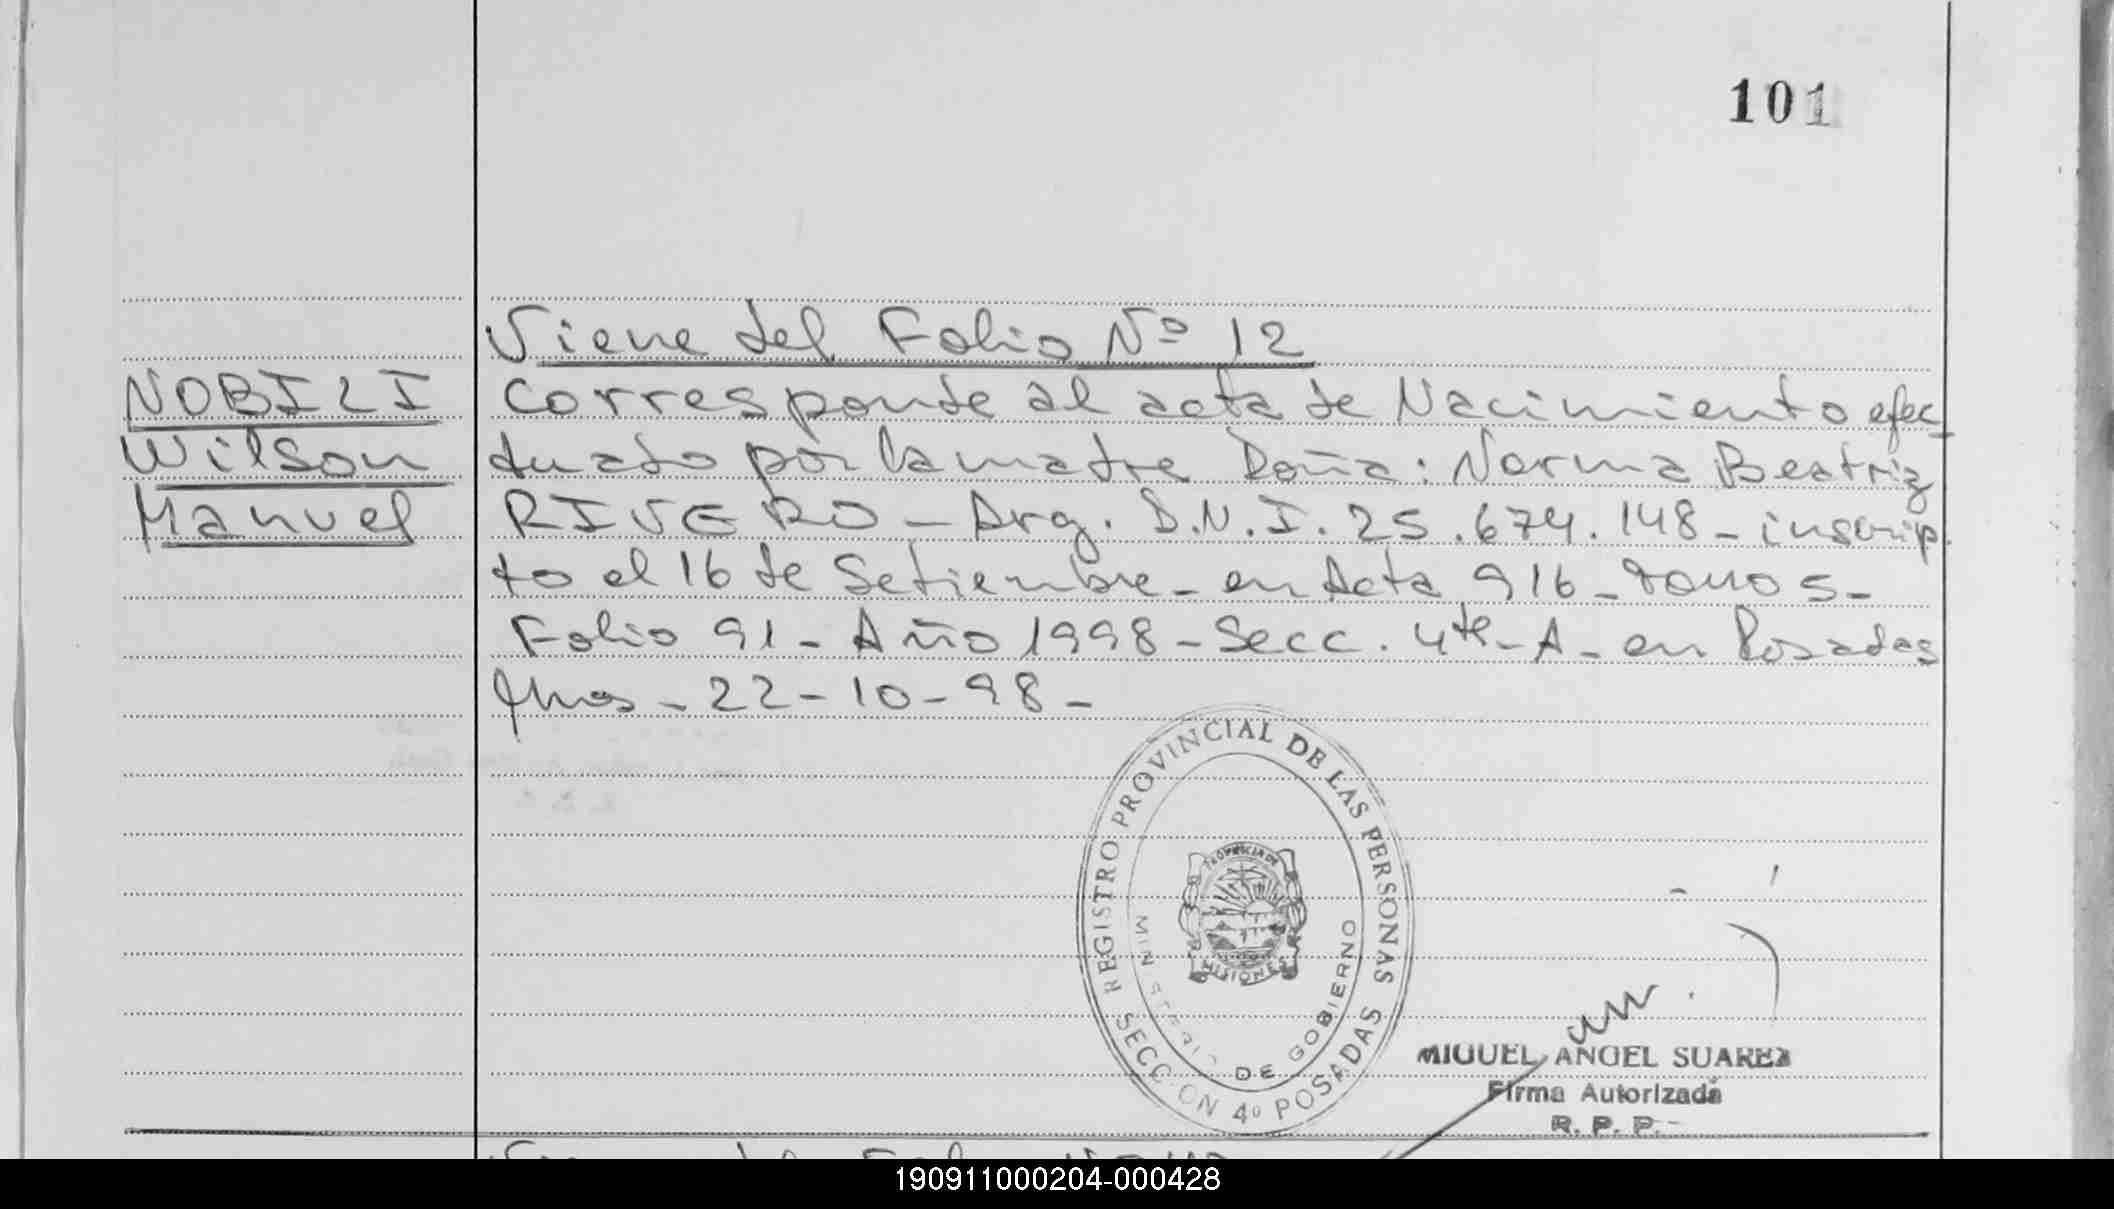 101
Viene del Folio Nº 12
NOBILI
Wilson
Manuel
Corresponde al acta de Nacimiento efec-
tuado por la madre Doña: Norma Beatriz
RIVERO - Arg. D.N.I. 25.674.148 - inscrip
to el 16 de Setiembre - en Acta 916 - Tomo 5 -
Folio 91 - Año 1998 - Secc. 4ta - A - en Posadas
22 - 10 - 98 -
REGISTRO PROVINCIAL DE LAS PERSONAS
SECCION 4º POSADAS
MINISTERIO DE GOBIERNO
PROVINCIA DE
MISIONES
MIGUEL ANGEL SUAREZ
Firma Autorizada
R. P. P.
190911000204-000428